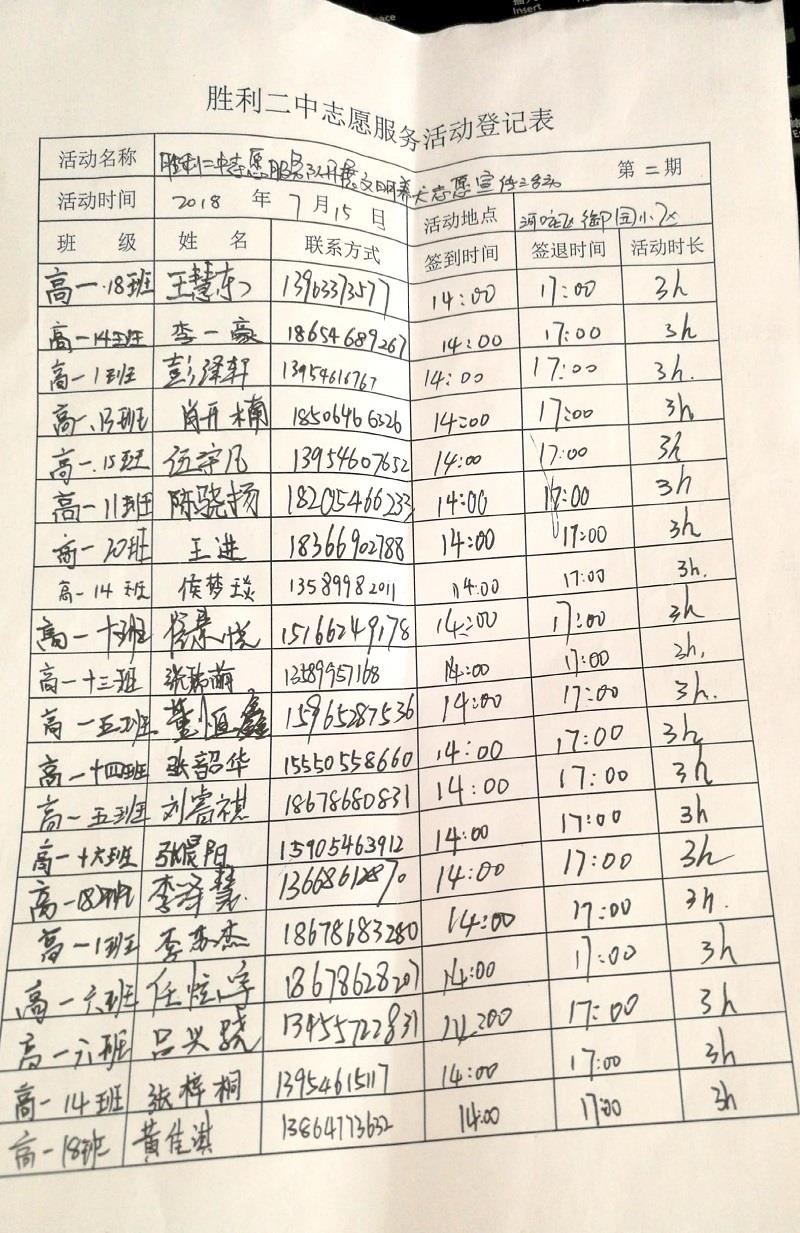 Insert
胜利二中志愿服务活动登记表
活动名称 胜利二中志愿服务队开展文明养犬志愿宣传活动 第二期
活动时间 2018 年 7月15日 活动地点 御园小区
班 级 姓 名 联系方式 签到时间 签退时间 活动时长
高一.18班 王慧东 13963373577 14:00 17:00 3h
高一14班 李一豪 18654689267 14:00 17:00 3h
高一1班 彭泽轩 13954616767 14:00 17:00 3h.
高一.13班 肖开楠 18506466326 14:00 17:00 3h
高一.15班 伍宇凡 13954607652 14:00 17:00 3h
高一11班 陈骁扬 18205466233 14:00 17:00 3h
高一20班 王进 18366902788 14:00 17:00 3h
高一14班 侯梦琰 13589982011 14:00 17:00 3h.
高一十班 景悦 15166249178 14:00 17:00 3h
高一十三班 张萌 13589957168 14:00 17:00 3h.
高一五班 董恒鑫 15965287536 14:00 17:00 3h.
高一十四班 张韶华 15550558660 14:00 17:00 3h
高一五班 刘睿祺 18678680831 14:00 17:00 3h
高一十六班 张晨阳 15905463912 14:00 17:00 3h
高一18班 李泽慧 13668612870 14:00 17:00 3h
高一1班 李苏杰 18678683280 14:00 17:00 3h.
高一六班 任炫宇 18678628207 14:00 17:00 3h
高一六班 吕兴骁 13455722831 14:00 17:00 3h
高一14班 张梓桐 13954615117 14:00 17:00 3h
高一18班 黄佳淇 13864773632 14:00 17:00 3h